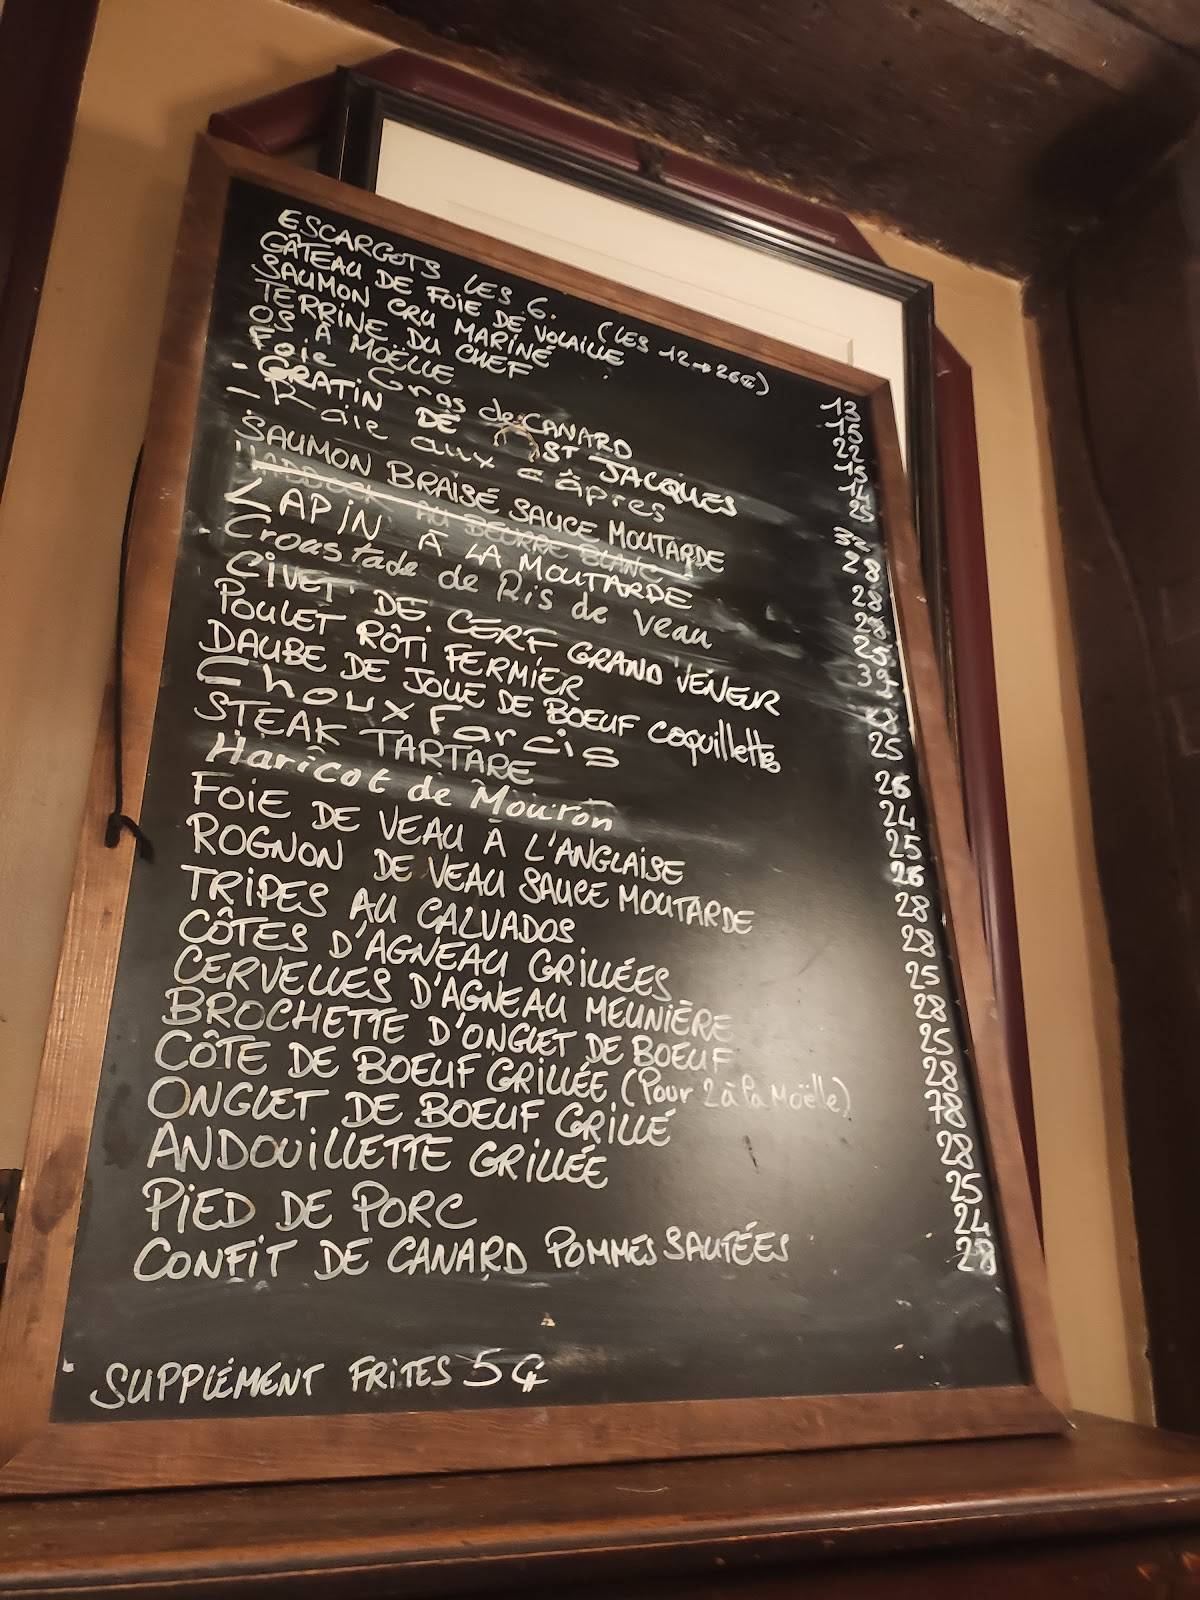 ESCARGOTS LES 6. (LES 12→26€) 13
GÂTEAU DE FOIE DE VOLAILLE 15
SAUMON CRU MARINÉ 22
TERRINE DU CHEF 15
OS À MOËLLE 14
Foie Gras de CANARD 25
- GRATIN DE ST JACQUES
- Raie aux câpres 28
SAUMON BRAISÉ SAUCE MOUTARDE 28
HADDOCK AU BEURRE BLANC 28
LAPIN À LA MOUTARDE 25
Croustade de Ris de Veau
CIVET DE CERF GRAND VENEUR
POULET RÔTI FERMIER 25
DAUBE DE JOUE DE BOEUF coquillettes 26
Choux Farcis 24
STEAK TARTARE 25
Haricot de Mouton 26
FOIE DE VEAU À L'ANGLAISE 28
ROGNON DE VEAU SAUCE MOUTARDE 28
TRIPES AU CALVADOS 25
CÔTES D'AGNEAU GRILLÉES 28
CERVELLES D'AGNEAU MEUNIÈRE 25
BROCHETTE D'ONGLET DE BOEUF 28
CÔTE DE BOEUF GRILLÉE (Pour 2 à la Moëlle)
ONGLET DE BOEUF GRILLÉ 28
ANDOUILLETTE GRILLÉE 25
PIED DE PORC 24
CONFIT DE CANARD POMMES SAUTÉES 28
SUPPLÉMENT FRITES 5€